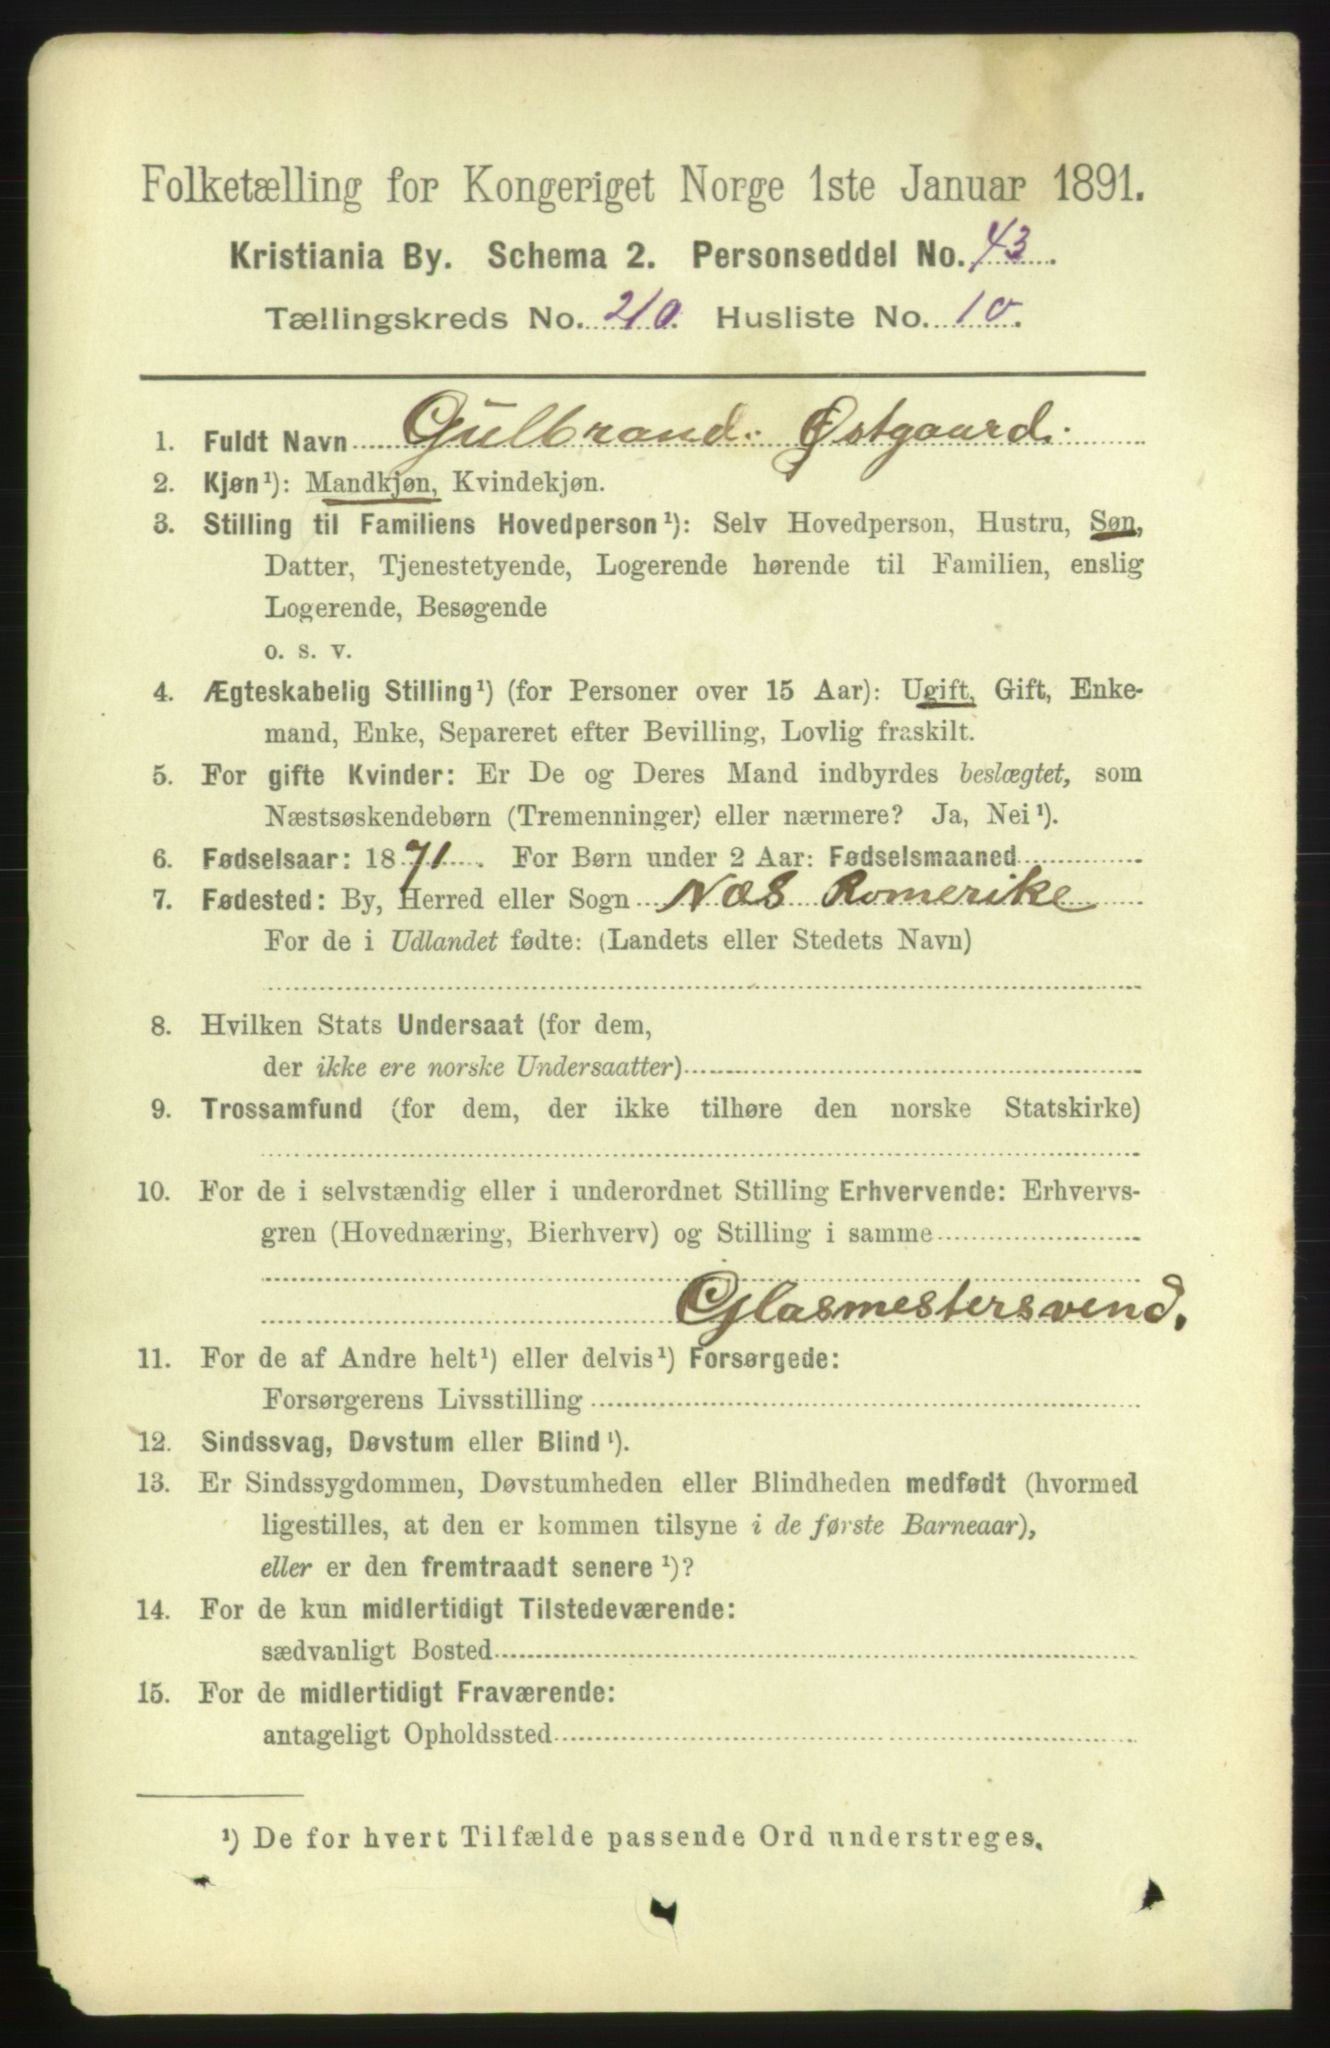 Folketælling for Kongeriget Norge 1ste Januar 1891.
Kristiania By. Schema 2. Personseddel No. 43.
Tællingskreds No. 210. Husliste No. 10.
1. Fuldt Navn Gulbrand. Østgaard.
2. Kjøn¹): Mandkjøn, Kvindekjøn.
3. Stilling til Familiens Hovedperson¹): Selv Hovedperson, Hustru, Søn,
Datter, Tjenestetyende, Logerende hørende til Familien, enslig
Logerende, Besøgende
o. s. v.
4. Ægteskabelig Stilling¹) (for Personer over 15 Aar): Ugift, Gift, Enke-
mand, Enke, Separeret efter Bevilling, Lovlig fraskilt.
5. For gifte Kvinder: Er De og Deres Mand indbyrdes beslægtet, som
Næstsøskendebørn (Tremenninger) eller nærmere? Ja, Nei¹).
6. Fødselsaar: 1871. For Børn under 2 Aar: Fødselsmaaned
7. Fødested: By, Herred eller Sogn Næs Romerike
For de i Udlandet fødte: (Landets eller Stedets Navn)
8. Hvilken Stats Undersaat (for dem,
der ikke ere norske Undersaatter)
9. Trossamfund (for dem, der ikke tilhøre den norske Statskirke)
10. For de i selvstændig eller i underordnet Stilling Erhvervende: Erhvervs-
gren (Hovednæring, Bierhverv) og Stilling i samme
Glasmestersvend.
11. For de af Andre helt¹) eller delvis¹) Forsørgede:
Forsørgerens Livsstilling
12. Sindssvag, Døvstum eller Blind¹).
13. Er Sindssygdommen, Døvstumheden eller Blindheden medfødt (hvormed
ligestilles, at den er kommen tilsyne i de første Barneaar),
eller er den fremtraadt senere¹)?
14. For de kun midlertidigt Tilstedeværende:
sædvanligt Bosted
15. For de midlertidigt Fraværende:
antageligt Opholdssted
¹) De for hvert Tilfælde passende Ord understreges.